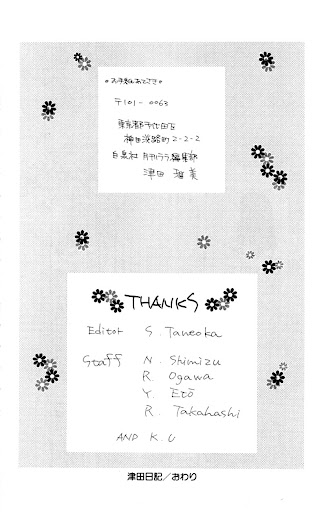 ✿お手紙のあてさき✿
〒101-0063
東京都千代田区
神田淡路町2-2-2
白泉社 月刊ララ編集部
津田 雅美
THANKS
Editor S. Taneoka
Staff N. Shimizu
R. Ogawa
Y. Etō
R. Takahashi
AND K.U
津田日記／おわり